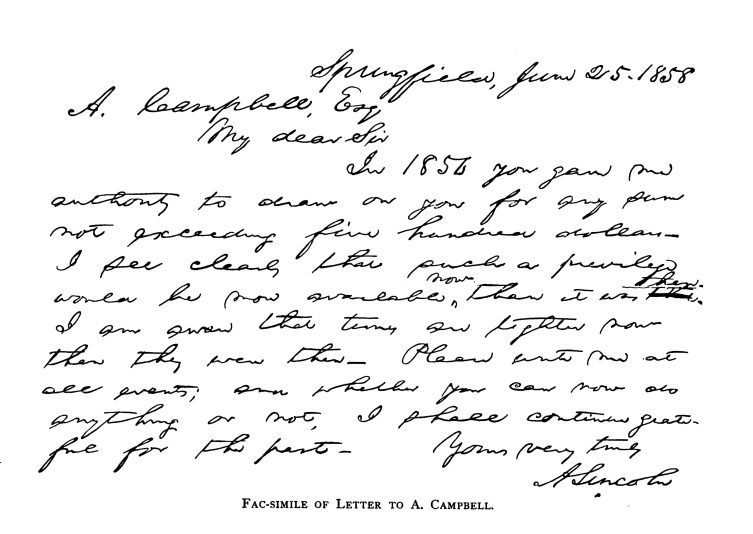 Springfield, June 25. 1858
A. Campbell, Esq
My dear Sir
In 1856 you gave me
authority to draw on you for any sum
not exceeding five hundred dollars—
I see clearly that such a previlege
would be more available now than it was then.
I am aware that times are tighter now
than they were then— Please write me at
all events; and whether you can now do
anything or not, I shall continue grate-
ful for the past— Yours very truly
A Lincoln
FAC-SIMILE OF LETTER TO A. CAMPBELL.